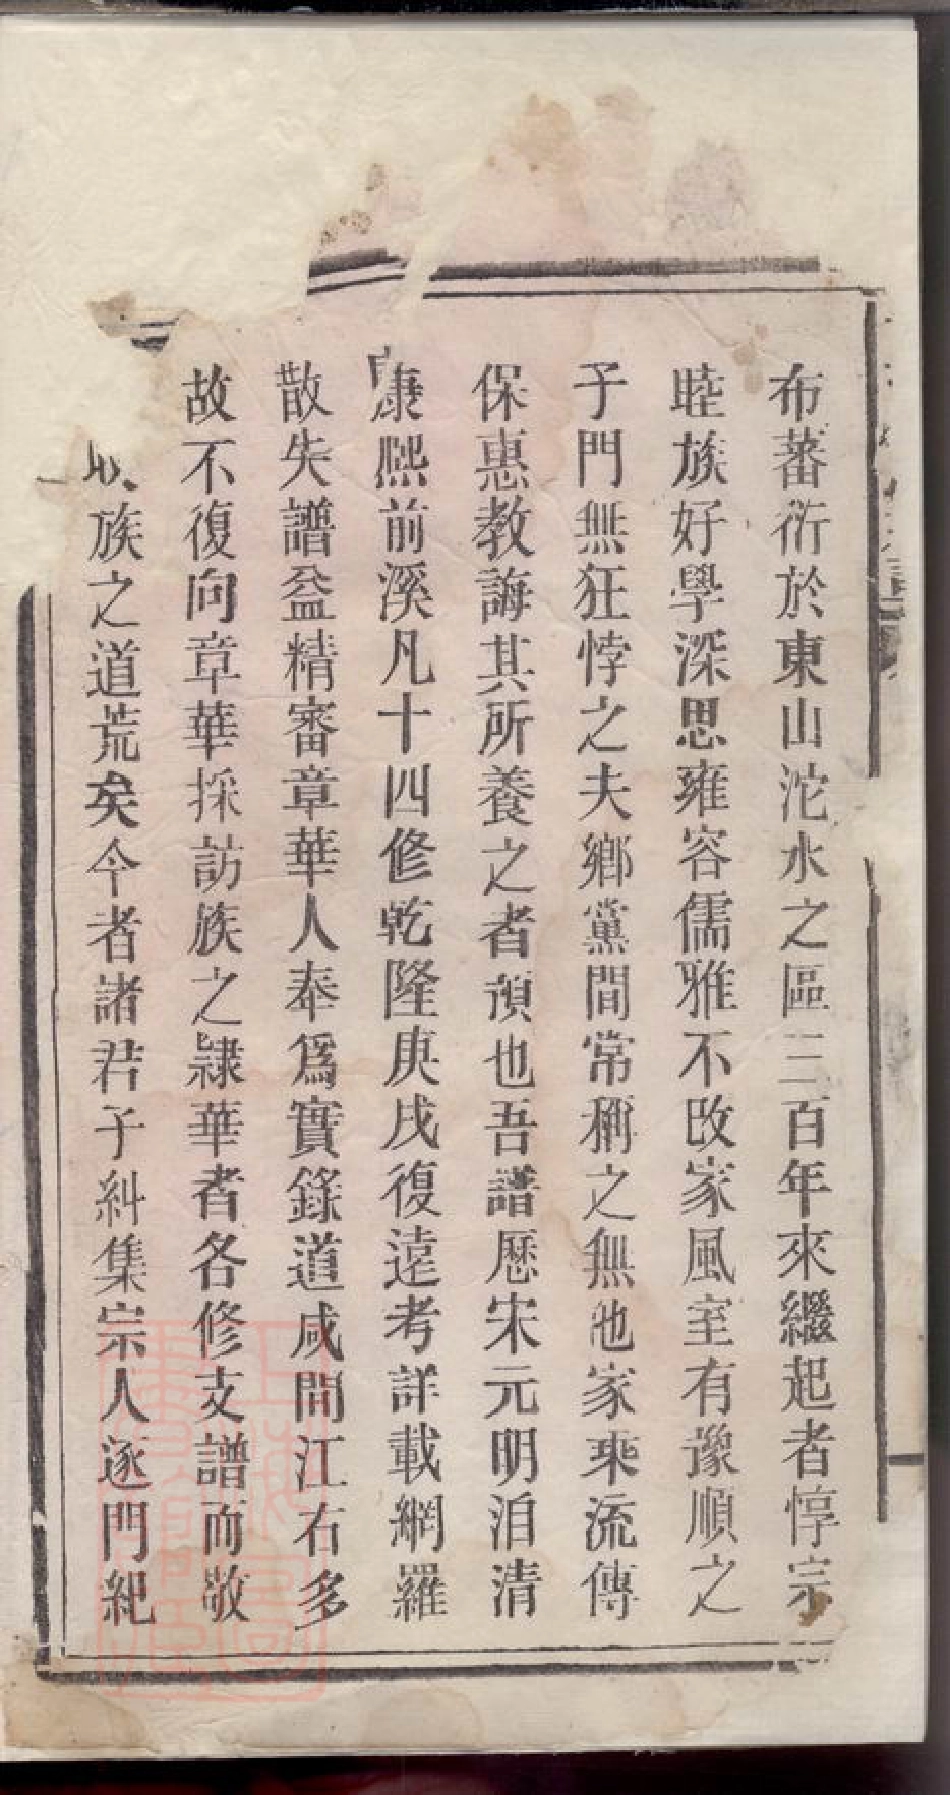 布蕃衍於東山沱水之區三百年來繼起者惇宗
睦族好學深思雍容儒雅不改家風室有豫順之
子門無狂悖之夫鄉黨間常稱之無他家乘流傳
保惠教誨其所養之者預也吾譜歷宋元明洎清
康熙前溪凡十四修乾隆庚戌復遠考詳載網羅
散失譜益精審章華人奉爲實錄道咸間江右多
故不復向章華採訪族之隷華者各修支譜而敬
收族之道荒矣今者諸君子糾集宗人逐門紀
上海圖書館藏